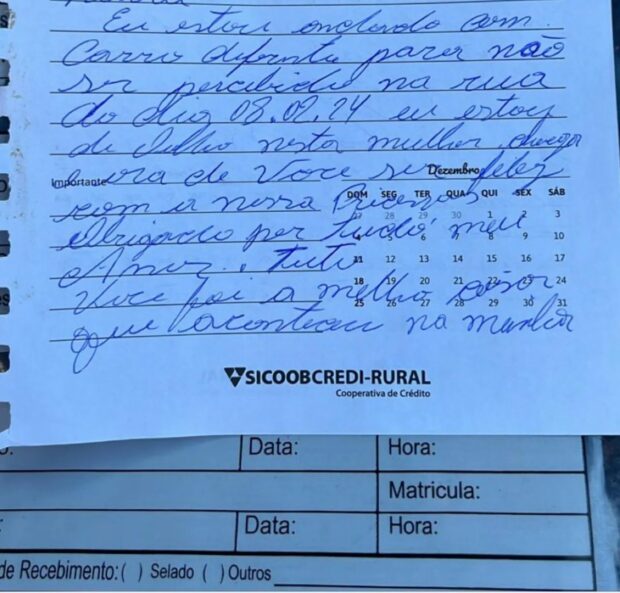 Eu estou andando com
Carro diferente para não
ser percebido na rua
do dia 08.02.24 eu estou
de Julho nesta mulher, chega
Importante
hora de Voce ser feliz
Dezembro
com a nossa Princesa
DOM SEG TER QUA QUI SEX SÁB
27 28 29 30 1 2 3
Obrigado por tudo meu
4 5 6 7 8 9 10
Amor. Tuti
11 12 13 14 15 16 17
Voce foi a melhor coisa
18 19 20 21 22 23 24
25 26 27 28 29 30 31
que aconteceu na minha
SICOOBCREDI-RURAL
Cooperativa de Crédito
Data: Hora:
Matricula:
Data: Hora:
de Recebimento: ( ) Selado ( ) Outros